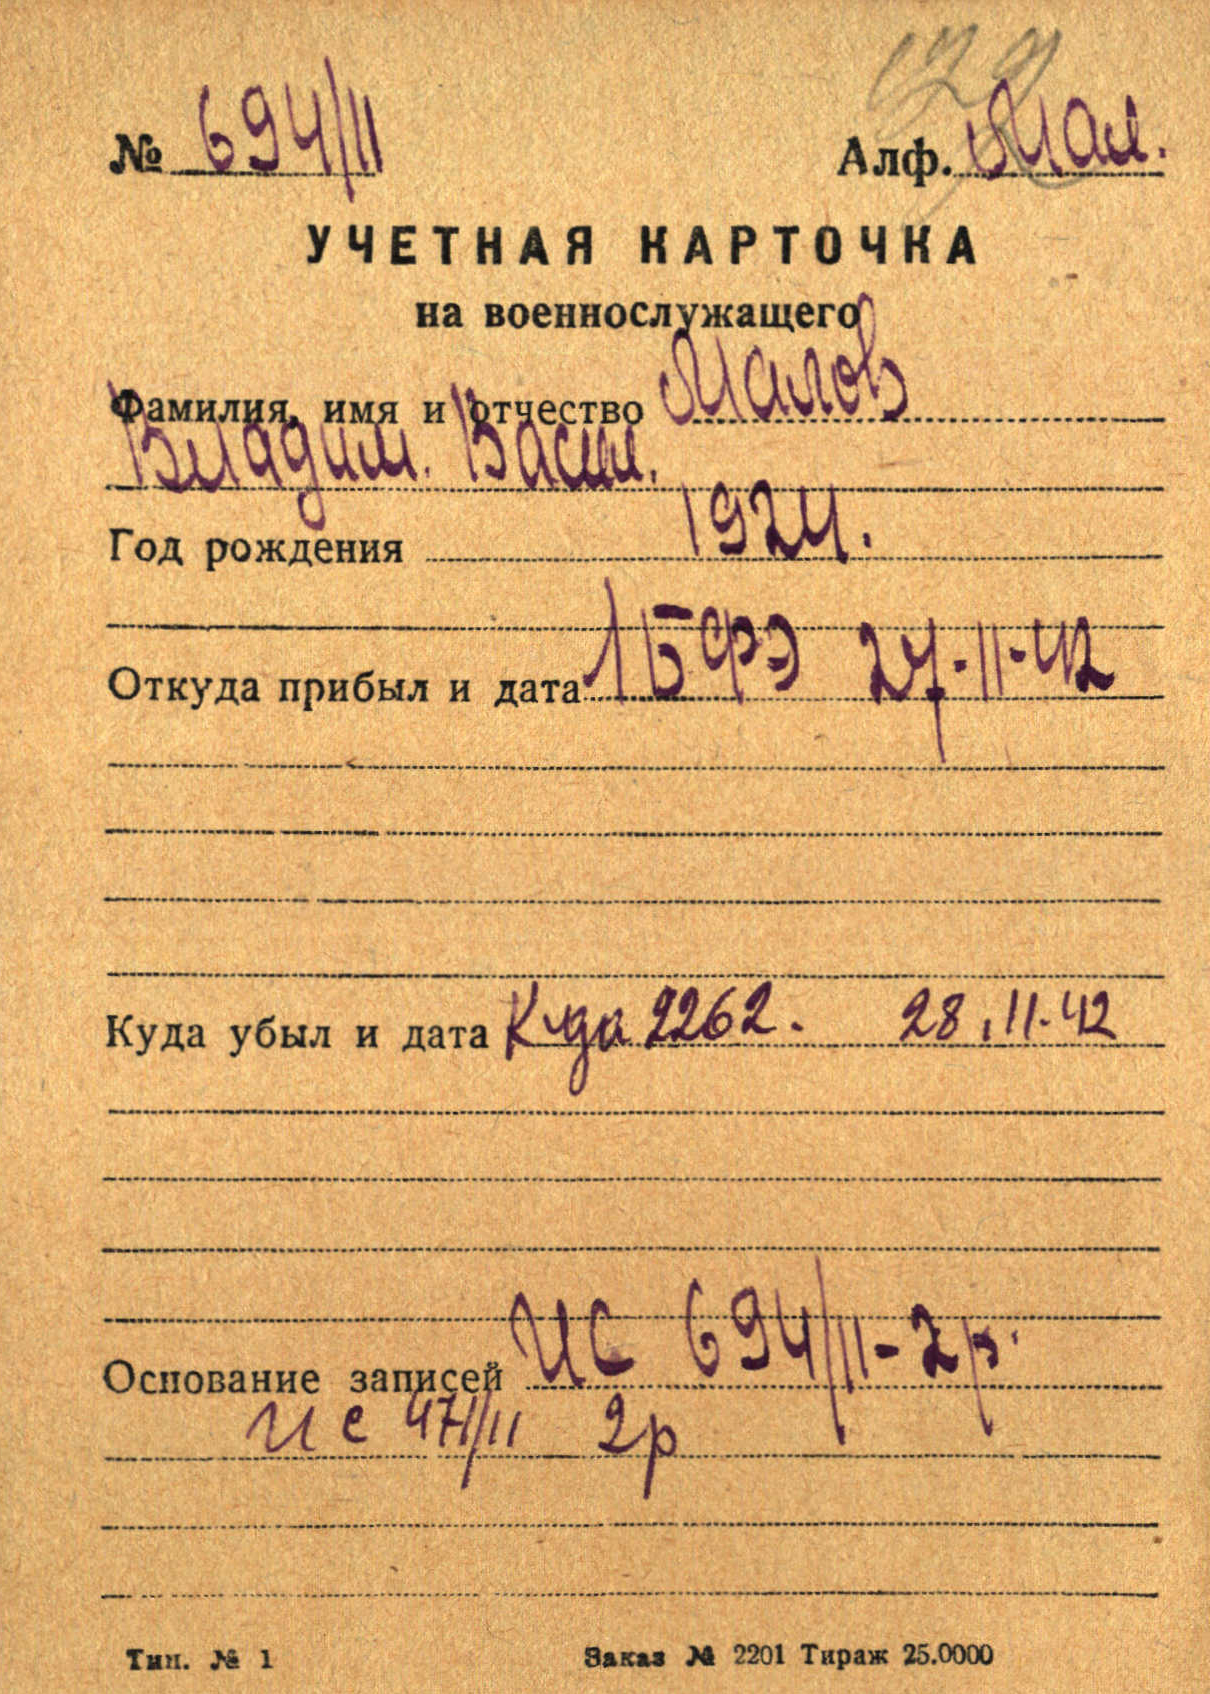 129
№ 694/11 Алф. Мал.
УЧЕТНАЯ КАРТОЧКА
на военнослужащего
Фамилия, имя и отчество Малов
Владим. Васил.
Год рождения 1924.
Откуда прибыл и дата 1 БФЭ 27-11-42
Куда убыл и дата К-да 2262. 28.11.42
Основание записей ИС 694/11-2р.
ИС 471/11 2р
Тип. № 1 Заказ № 2201 Тираж 25.0000